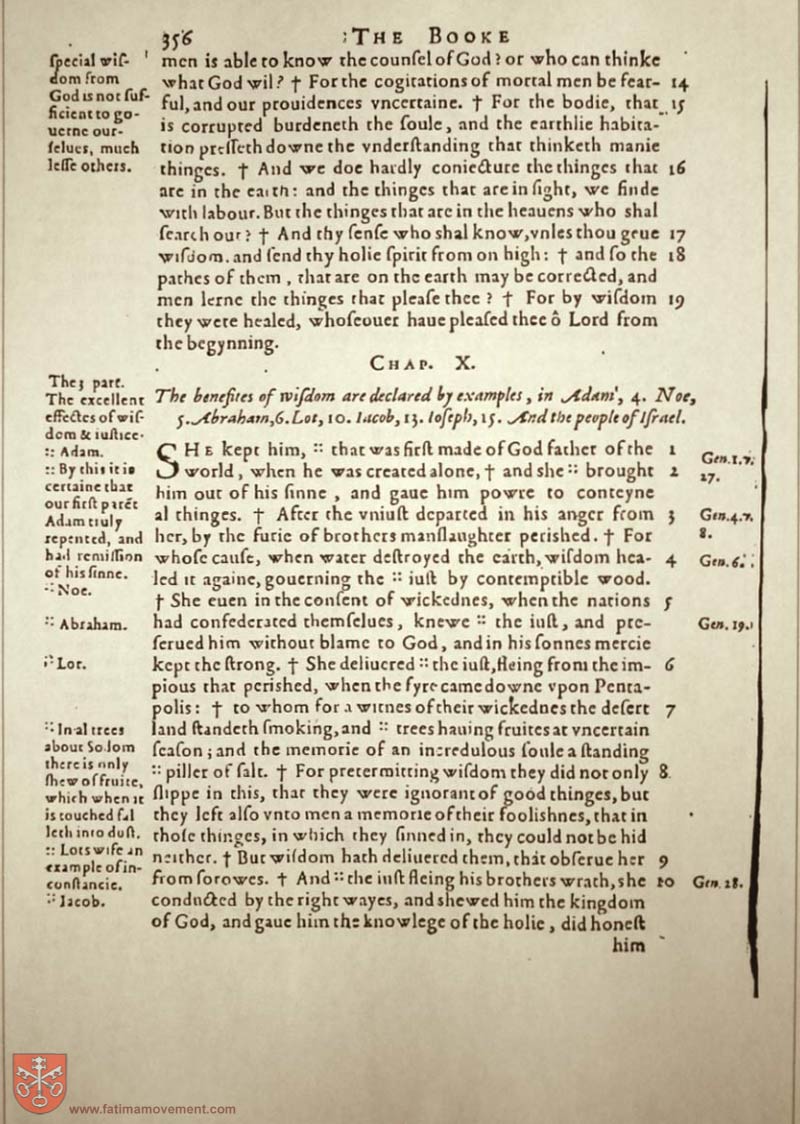 356 :THE BOOKE
ſpecial wiſ-
dom from
God is not ſuf-
ficient to go-
uerne our-
ſelues, much
leſſe others.
men is able to know the counſel of God? or who can thinke
what God wil? † For the cogitations of mortal men be fear- 14
ful, and our prouidences vncertaine. † For the bodie, that 15
is corrupted burdeneth the ſoule, and the earthlie habita-
tion preſſeth downe the vnderſtanding that thinketh manie
thinges. † And we doe hardly coniecture the thinges that 16
are in the earth: and the thinges that are in ſight, we finde
with labour. But the thinges that are in the heauens who shal
ſearch out? † And thy ſenſe who shal know, vnles thou geue 17
wiſdom. and ſend thy holie ſpirit from on high: † and ſo the 18
pathes of them, that are on the earth may be corrected, and
men lerne the thinges that pleaſe thee? † For by wiſdom 19
they were healed, whoſeouer haue pleaſed thee ô Lord from
the begynning.
CHAP. X.
The benefites of wiſdom are declared by examples, in Adam, 4. Noe,
5. Abraham, 6. Lot, 10. Iacob, 13. Ioſeph, 15. And the people of Iſrael.
The 3 part.
The excellent
effectes of wiſ-
dom & iuſtice.
:: Adam.
:: By this it is
certaine that
our firſt parēt
Adam truly
repented, and
had remiſſion
of his ſinne.
:: Noe.
:: Abraham.
:: Lot.
:: In al trees
about Sodom
there is only
ſhew of fruite,
which when it
is touched fal
leth into duſt.
:: Lots wife an
example of in-
conſtancie.
:: Jacob.
SHE kept him, :: that was firſt made of God father of the 1
world, when he was created alone, † and she :: brought 2
him out of his ſinne, and gaue him powre to conteyne
al thinges. † After the vniuſt departed in his anger from 3
her, by the furie of brothers manſlaughter perished. † For
whoſe cauſe, when water deſtroyed the earth, wiſdom hea- 4
led it againe, gouerning the :: iuſt by contemptible wood.
† She euen in the conſent of wickednes, when the nations 5
had confederated themſelues, knewe :: the iuſt, and pre-
ſerued him without blame to God, and in his ſonnes mercie
kept the ſtrong. † She deliuered :: the iuſt, fleing from the im- 6
pious that perished, when the fyre came downe vpon Penta-
polis: † to whom for a witnes of their wickednes the deſert 7
land ſtandeth ſmoking, and :: trees hauing fruites at vncertain
ſeaſon; and the memorie of an incredulous ſoule a ſtanding
:: piller of ſalt. † For pretermitting wiſdom they did not only 8
ſlippe in this, that they were ignorant of good thinges, but
they left alſo vnto men a memorie of their fooliſhnes, that in
thoſe thinges, in which they ſinned in, they could not be hid
neither. † But wiſdom hath deliuered them, that obſerue her 9
from ſorowes. † And :: the iuſt fleing his brothers wrath, she 10
conducted by the right wayes, and shewed him the kingdom
of God, and gaue him the knowlege of the holie, did honeſt
him
Gen. 1. v.
27.
Gen. 4. v.
8.
Gen. 6.
Gen. 19.
Gen. 28.
www.fatimamovement.com